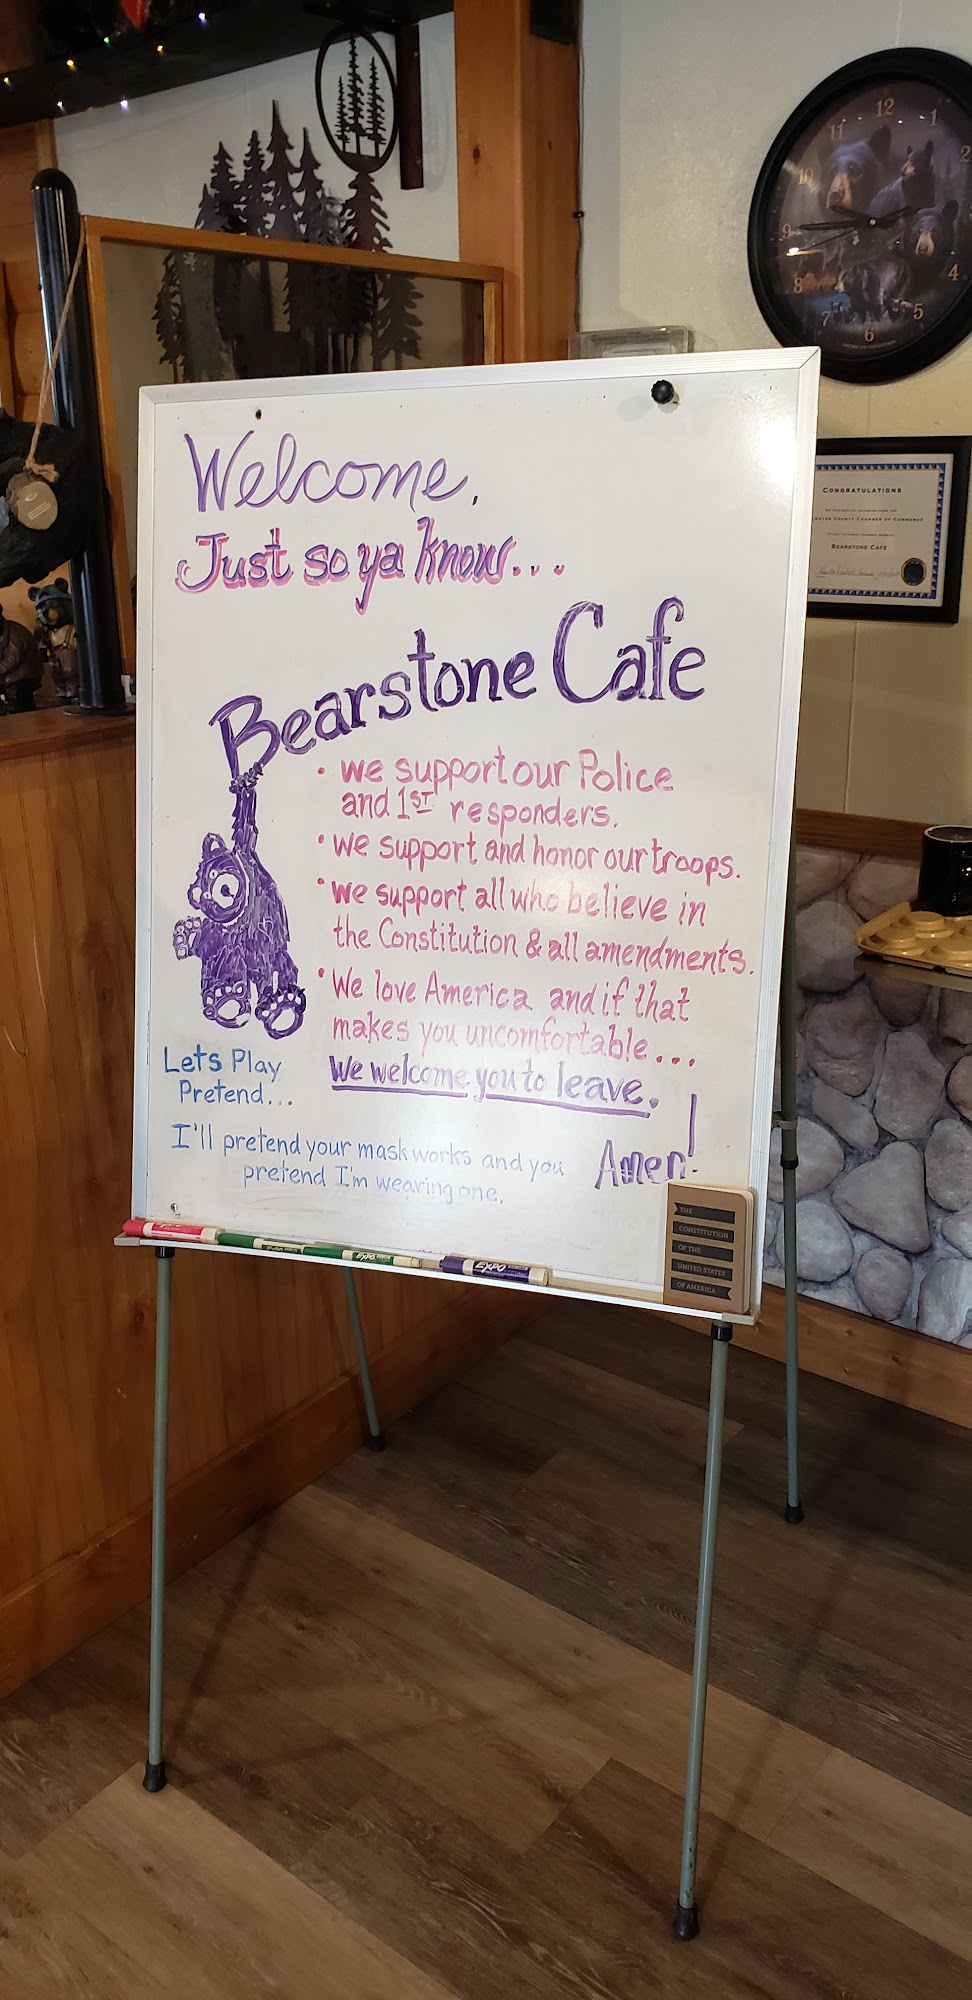 Welcome,
Just so ya know...
Bearstone Cafe
• we support our Police
and 1ST responders.
• we support and honor our troops.
• we support all who believe in
the Constitution & all amendments.
• We love America and if that
makes you uncomfortable...
We welcome you to leave.
Amen!
Lets Play
Pretend...
I'll pretend your mask works and you
pretend I'm wearing one.
THE
CONSTITUTION
OF THE
UNITED STATES
OF AMERICA
EXPO
EXPO
CONGRATULATIONS
COUNTY CHAMBER OF COMMERCE
BEARSTONE CAFÉ
12
1
2
4
5
6
7
8
9
10
11